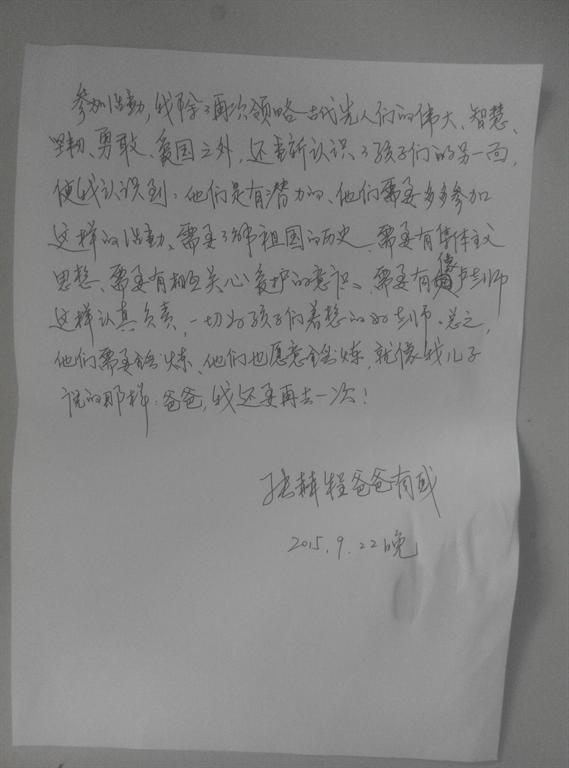 参加活动,我除了再次领略古代先人们的伟大、智慧、
坚韧、勇敢、爱国之外,还重新认识了孩子们的另一面,
使我认识到:他们是有潜力的、他们需要多多参加
这样的活动、需要了解祖国的历史、需要有集体主义
思想、需要有相互关心爱护的意识、需要有像卢老师
这样认真负责,一切为孩子们着想的好老师。总之,
他们需要锻炼、他们也愿意锻炼,就像我儿子
说的那样:爸爸,我还要再去一次!
张赫程爸爸有感
2015.9.22晚